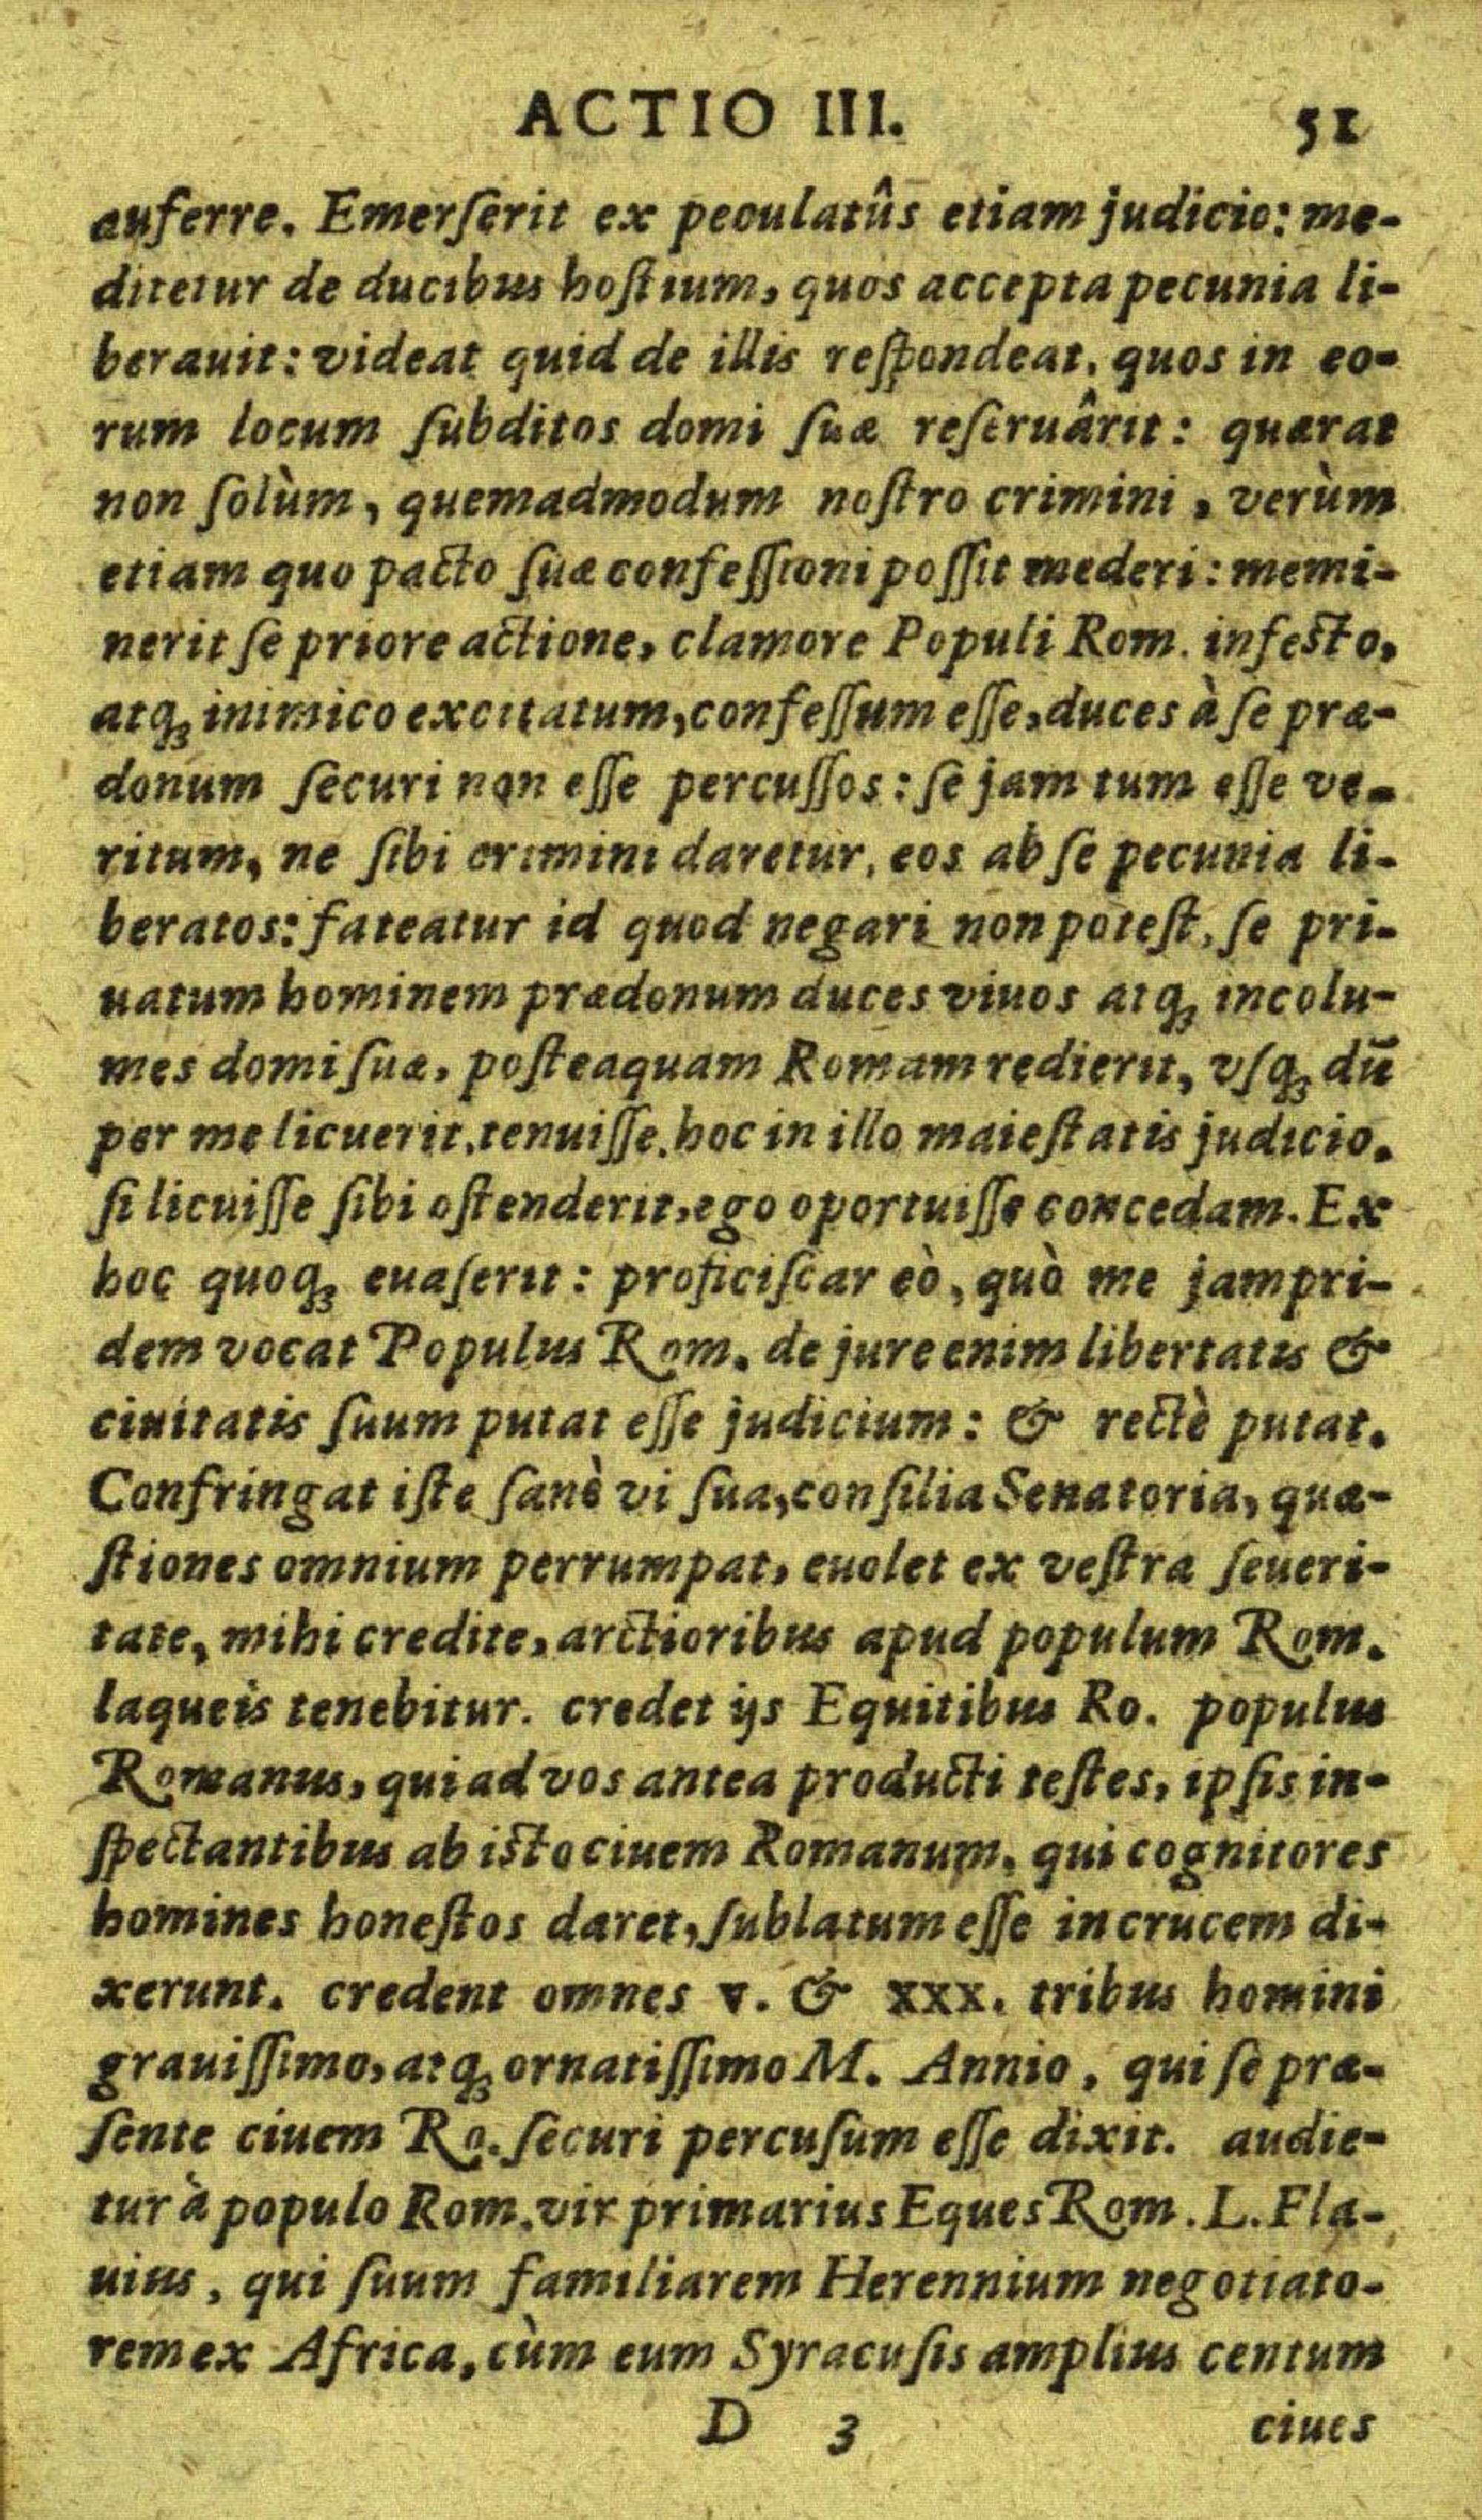 ACTIO III. 51
auferre. Emerſerit ex peculatûs etiam judicio: me-
ditetur de ducibus hoſtium, quos accepta pecunia li-
berauit: videat quid de illis reſpondeat, quos in eo-
rum locum ſubditos domi ſuæ reſeruârit: quærat
non ſolùm, quemadmodum noſtro crimini, verùm
etiam quo pacto ſuæ confeſſioni poſſit mederi: memi-
nerit ſe priore actione, clamore Populi Rom. infeſto,
atq; inimico excitatum, confeſſum eſſe, duces à ſe præ-
donum ſecuri non eſſe percuſſos: ſe jam tum eſſe ve-
ritum, ne ſibi crimini daretur, eos ab ſe pecunia li-
beratos: fateatur id quod negari non poteſt, ſe pri-
uatum hominem prædonum duces viuos atq; incolu-
mes domi ſuæ, poſteaquam Romam redierit, vſq; dū
per me licuerit, tenuiſſe. hoc in illo maieſtatis judicio.
ſi licuiſſe ſibi oſtenderit, ego oportuiſſe concedam. Ex
hoc quoq; euaſerit: proficiſcar eò, quò me jampri-
dem vocat Populus Rom. de jure enim libertatis &
ciuitatis ſuum putat eſſe judicium: & rectè putat.
Confringat iſte ſanè vi ſua, conſilia Senatoria, quæ-
ſtiones omnium perrumpat, euolet ex veſtra ſeueri-
tate, mihi credite, arctioribus apud populum Rom.
laqueis tenebitur. credet ijs Equitibus Ro. populus
Romanus, qui ad vos antea producti teſtes, ipſis in-
ſpectantibus ab iſto ciuem Romanum, qui cognitores
homines honeſtos daret, ſublatum eſſe in crucem di-
xerunt. credent omnes v. & xxx. tribus homini
grauiſſimo, atq; ornatiſſimo M. Annio, qui ſe præ-
ſente ciuem Ro. ſecuri percuſum eſſe dixit. audie-
tur à populo Rom. vir primarius Eques Rom. L. Fla-
uius, qui ſuum familiarem Herennium negotiato-
rem ex Africa, cùm eum Syracuſis amplius centum
D 3 ciues